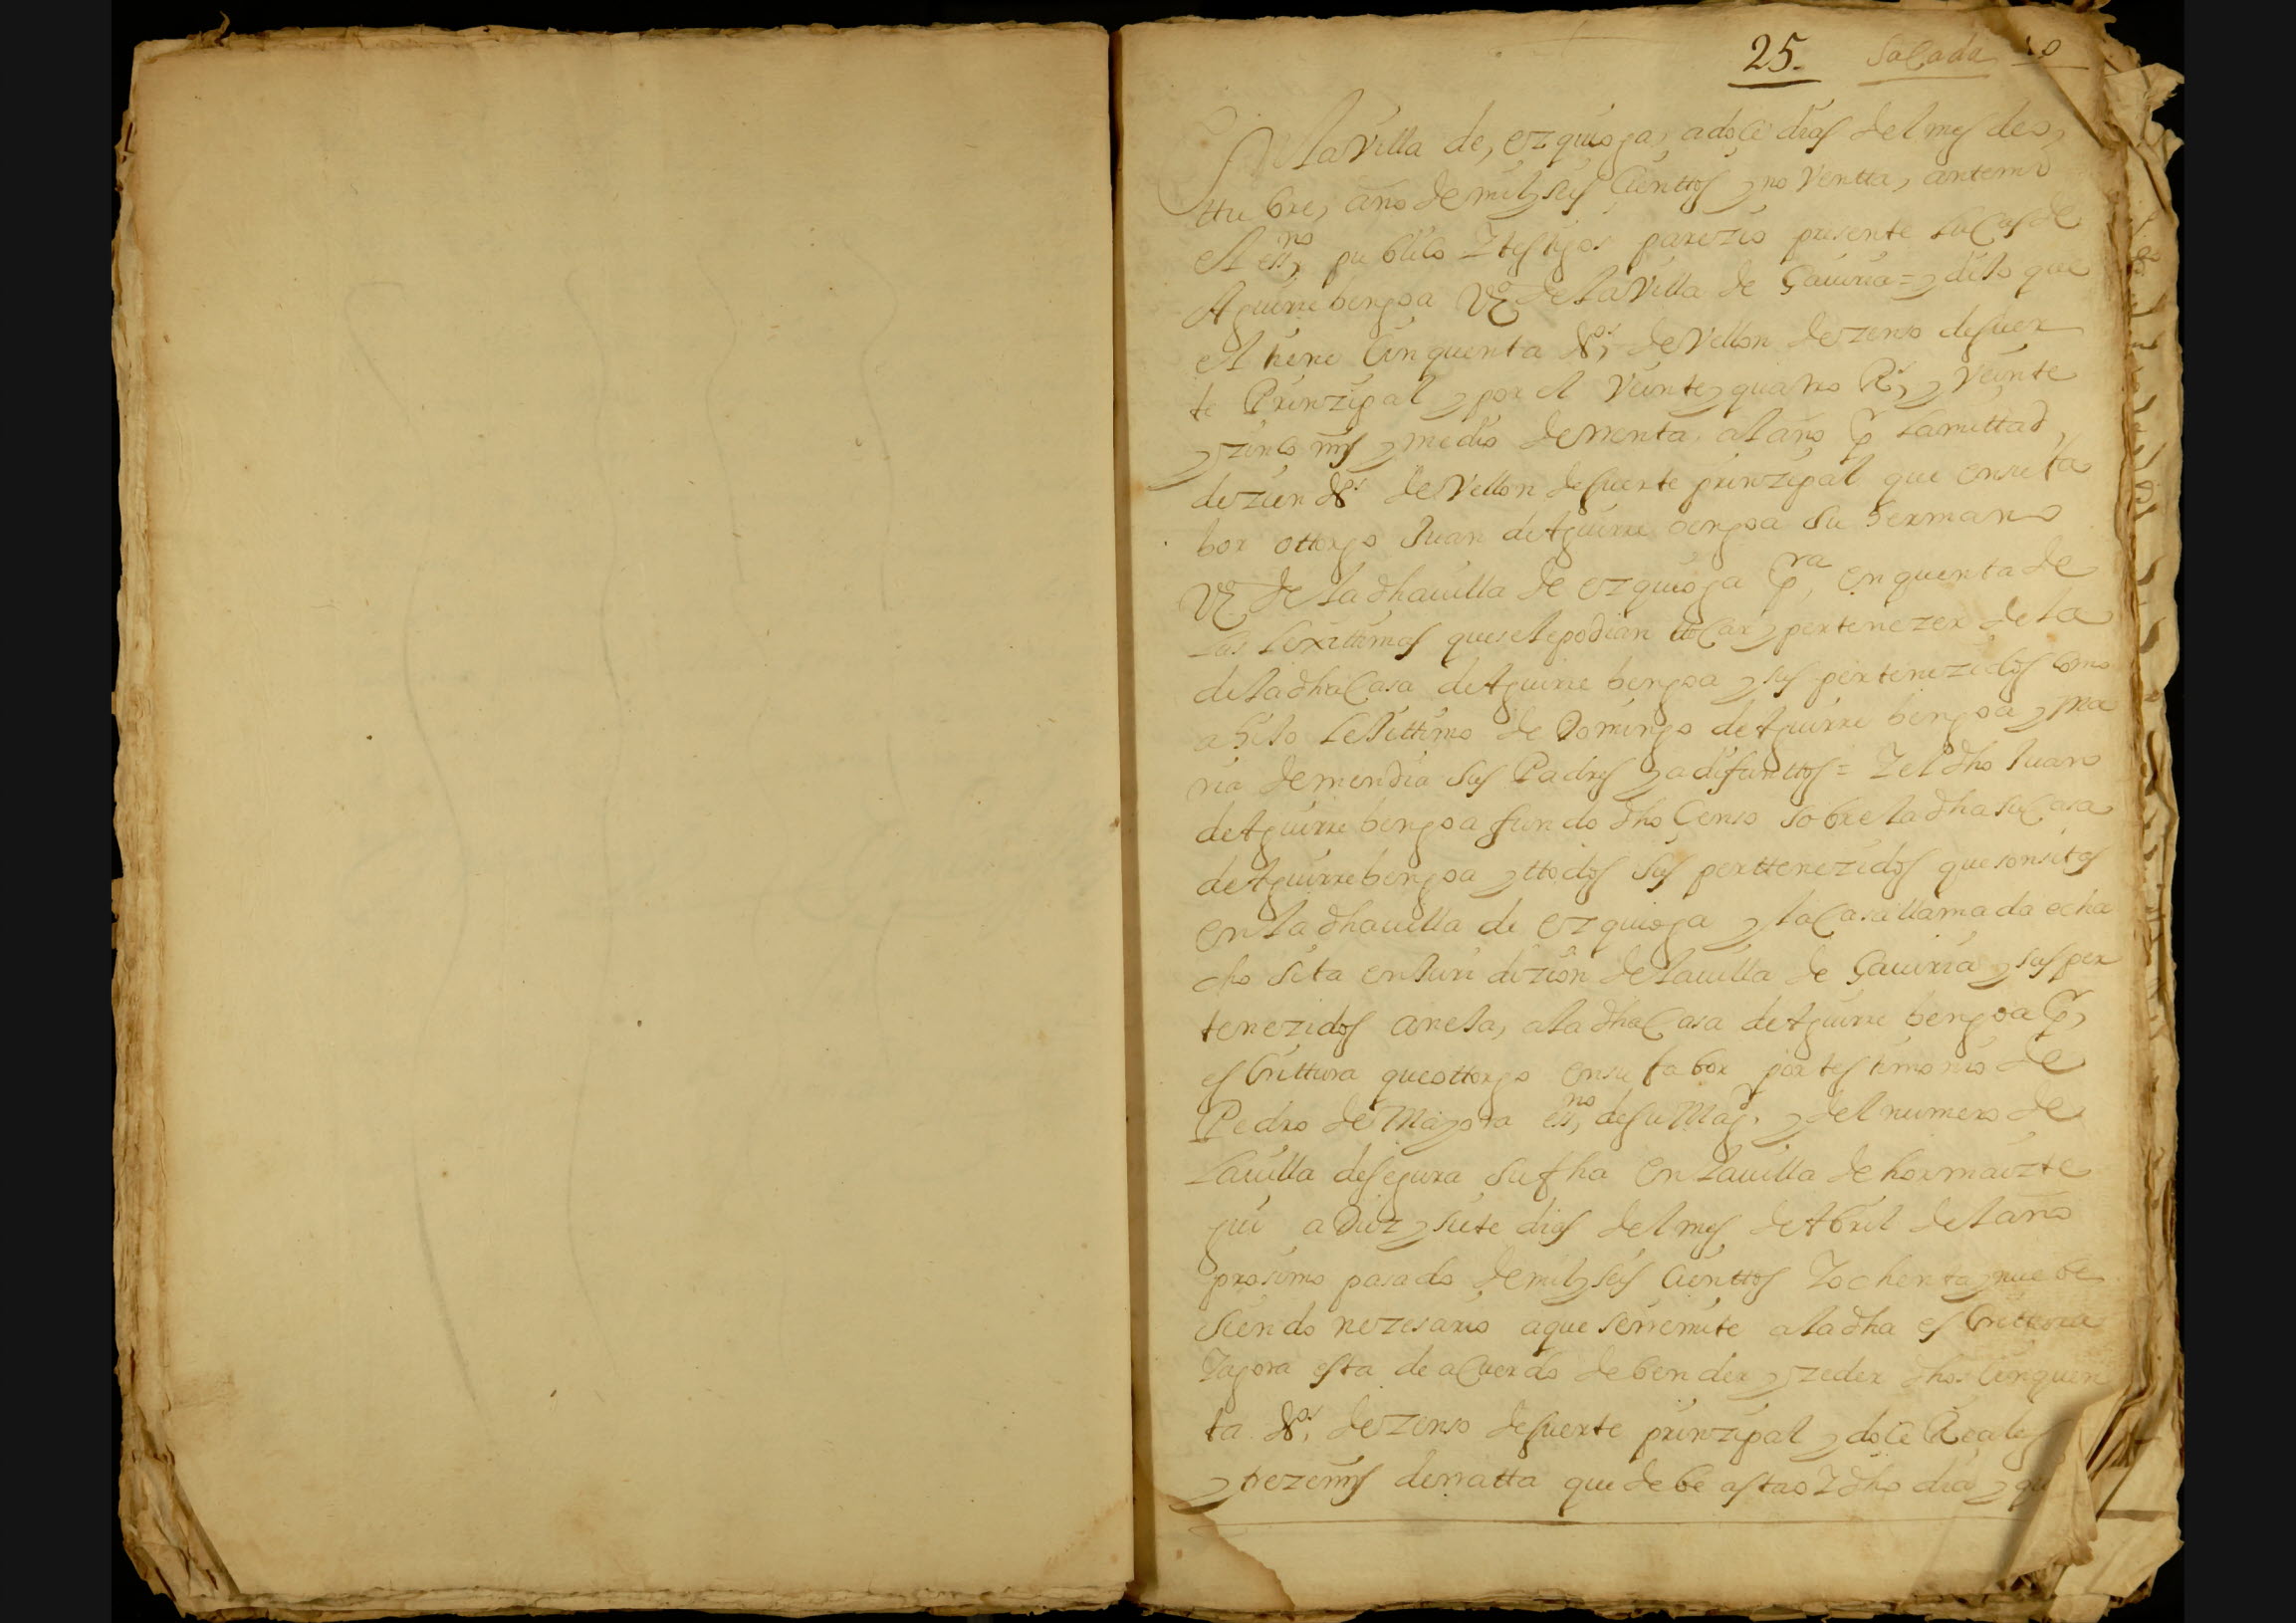 25. Sacada
En la Villa de, ezquioga, a doce dias del mes de o,
ttubre, año de mil y seis Cienttos y noventta, antemi
el essno, publico Y testigos parezio presente Lucas de
Aguirrebengoa Vzo de la Villa de Gauiria = y dijo que
el tiene Cinquenta dos, de Vellon de zenso de suer
te Prinzipal y por el Veinte y quatro Rs, y Veinte
y zinco mrs y medio derrenta, al año P la mittad
de zien dos de Vellon de suerte prinzipal que en su fa
bor ottorgo Juan de Aguirre bengoa Su hermano
Vzo de la dha uilla de ezquioga Pra, en quenta de
Las Lexittimas que se le podian ttocar y pertenezer de la
de la dha Casa de Aguirre bengoa y sus pertenezidos como
a hijo Lejittimo de Domingo de Aguirre bengoa y ma
ria de mendia Sus Padres ya difunttos = Y el dho Juan
de Aguirre bengoa fundo dho Çenso sobre la dha su Casa
de Aguirrebengoa y ttodos Sus perttenezidos que son sitos
en la dha uilla de ezquioga y la Casa llamada echa
cho sita en Juridizion de la uilla de Gauiria y sus per
tenezidos aneja, a la dha Casa de Aguirre bengoa P,
esCrittura que ottorgo en su fabor por testimonio de
Pedro de Mayora essno, de su Magd. y del numero de
La uilla de segura su fha en La uilla de hormaizte
gui a Diez y siete dias del mes de Abril del año
prosimo pasado de mil y seis Cienttos Y ochenta y nuebe
Siendo nezesario a que se rremite a la dha esCrittura
Y agora esta de aCuerdo de bender y zeder dhos Cinquen
ta dos, de zenso de suerte prinzipal y doce Reales
y treze mrs de rratta que debe asta oy dho dia y qu